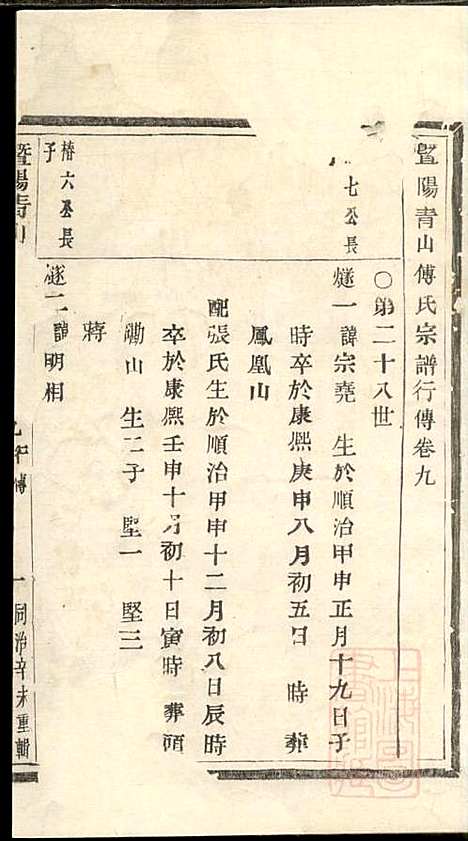 暨陽青山傅氏宗譜行傳卷九
○第二十八世
七公長
燧一 諱宗堯 生於順治甲申正月十九日子
時卒於康熙庚申八月初五日 時 葬
鳳凰山
配張氏生於順治甲申十二月初八日辰時
卒於康熙壬申十月初十日寅時 葬
山 生二子 堅一 堅三
蔣
椿六公長
子
燧二 諱明相
暨陽青山
一 同治辛未重輯